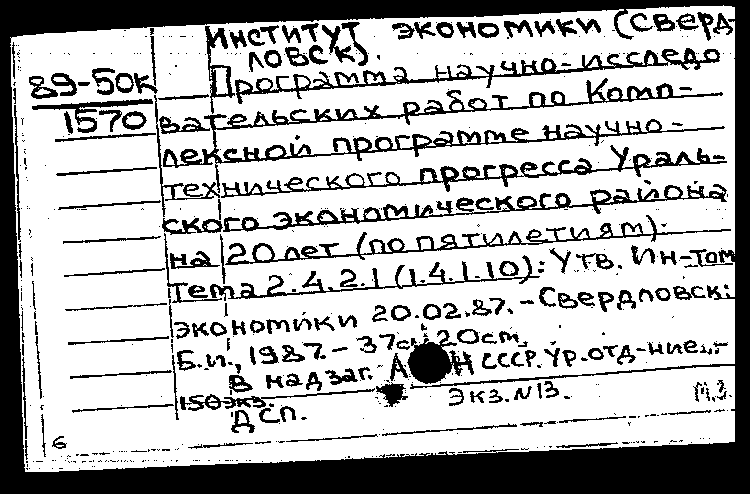 Институт экономики (Сверд-
ловск).
89-50к
1570
Программа научно-исследо
вательских работ по Комп-
лексной программе научно-
технического прогресса Ураль-
ского экономического района
на 20 лет (по пятилетиям):
Тема 2.4.2.1 (1.4.1.10): Утв. Ин-том
экономики 20.02.87. - Свердловск:
Б.и., 1987. - 37с; 20см.
В надзаг. А Н СССР. Ур. отд-ние.
150экз.
ДСП.
Экз. N13.
М.З.
6